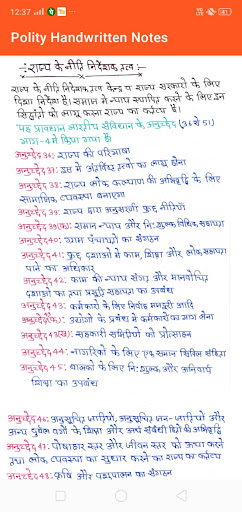 12:37
81
Polity Handwritten Notes
राज्य के नीति निर्देशक तत्व
राज्य के नीति निर्देशक तत्व केन्द्र व राज्य सरकारों के लिए
दिशा निर्देश है। समाज में न्याय स्थापित करने के लिए इन
सिद्धांतों को लागू करना राज्य का कर्तव्य है।
यह प्रावधान भारतीय संविधान के अनुच्छेद (36 से 51)
भाग-4 में किया गया है।
अनुच्छेद 36: राज्य की परिभाषा
अनुच्छेद 37: इस में अंतर्विष्ट तत्वों का लागू होना
अनुच्छेद 38: राज्य लोक कल्याण की अभिवृद्धि के लिए
सामाजिक व्यवस्था बनाएगा
अनुच्छेद 39: राज्य द्वारा अनुसरणी कुछ नीतियां
अनुच्छेद 39(क): समान न्याय और निःशुल्क विधिक सहायता
अनुच्छेद 40: ग्राम पंचायतों का संगठन
अनुच्छेद 41: कुछ दशाओं में काम, शिक्षा और लोक सहायता
पाने का अधिकार
अनुच्छेद 42: काम की न्याय संगत और मानवोचित
दशाओं का तथा प्रसूति सहायता का उपबंध
अनुच्छेद 43: कर्मकारों के लिए निर्वाह मजदूरी आदि
अनुच्छेद 43(क): उद्योगों के प्रबंध में कर्मकारों का भाग लेना
अनुच्छेद 43(ख): सहकारी समितियों को प्रोत्साहन
अनुच्छेद 44: नागरिकों के लिए एक समान सिविल संहिता
अनुच्छेद 45: बालकों के लिए निःशुल्क और अनिवार्य
शिक्षा का उपबंध
अनुच्छेद 46: अनुसूचित जातियों, अनुसूचित जन-जातियों और
अन्य दुर्बल वर्गों के शिक्षा और अर्थ संबंधी हितों की अभिवृद्धि
अनुच्छेद 47: पोषाहार स्तर और जीवन स्तर को ऊंचा करने
तथा लोक का सुधार करने का राज्य का कर्तव्य
अनुच्छेद 48: कृषि और पशुपालन का संगठन